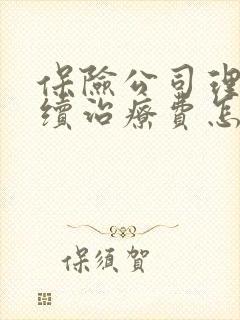 保險公司理
續治療費怎
保須賀